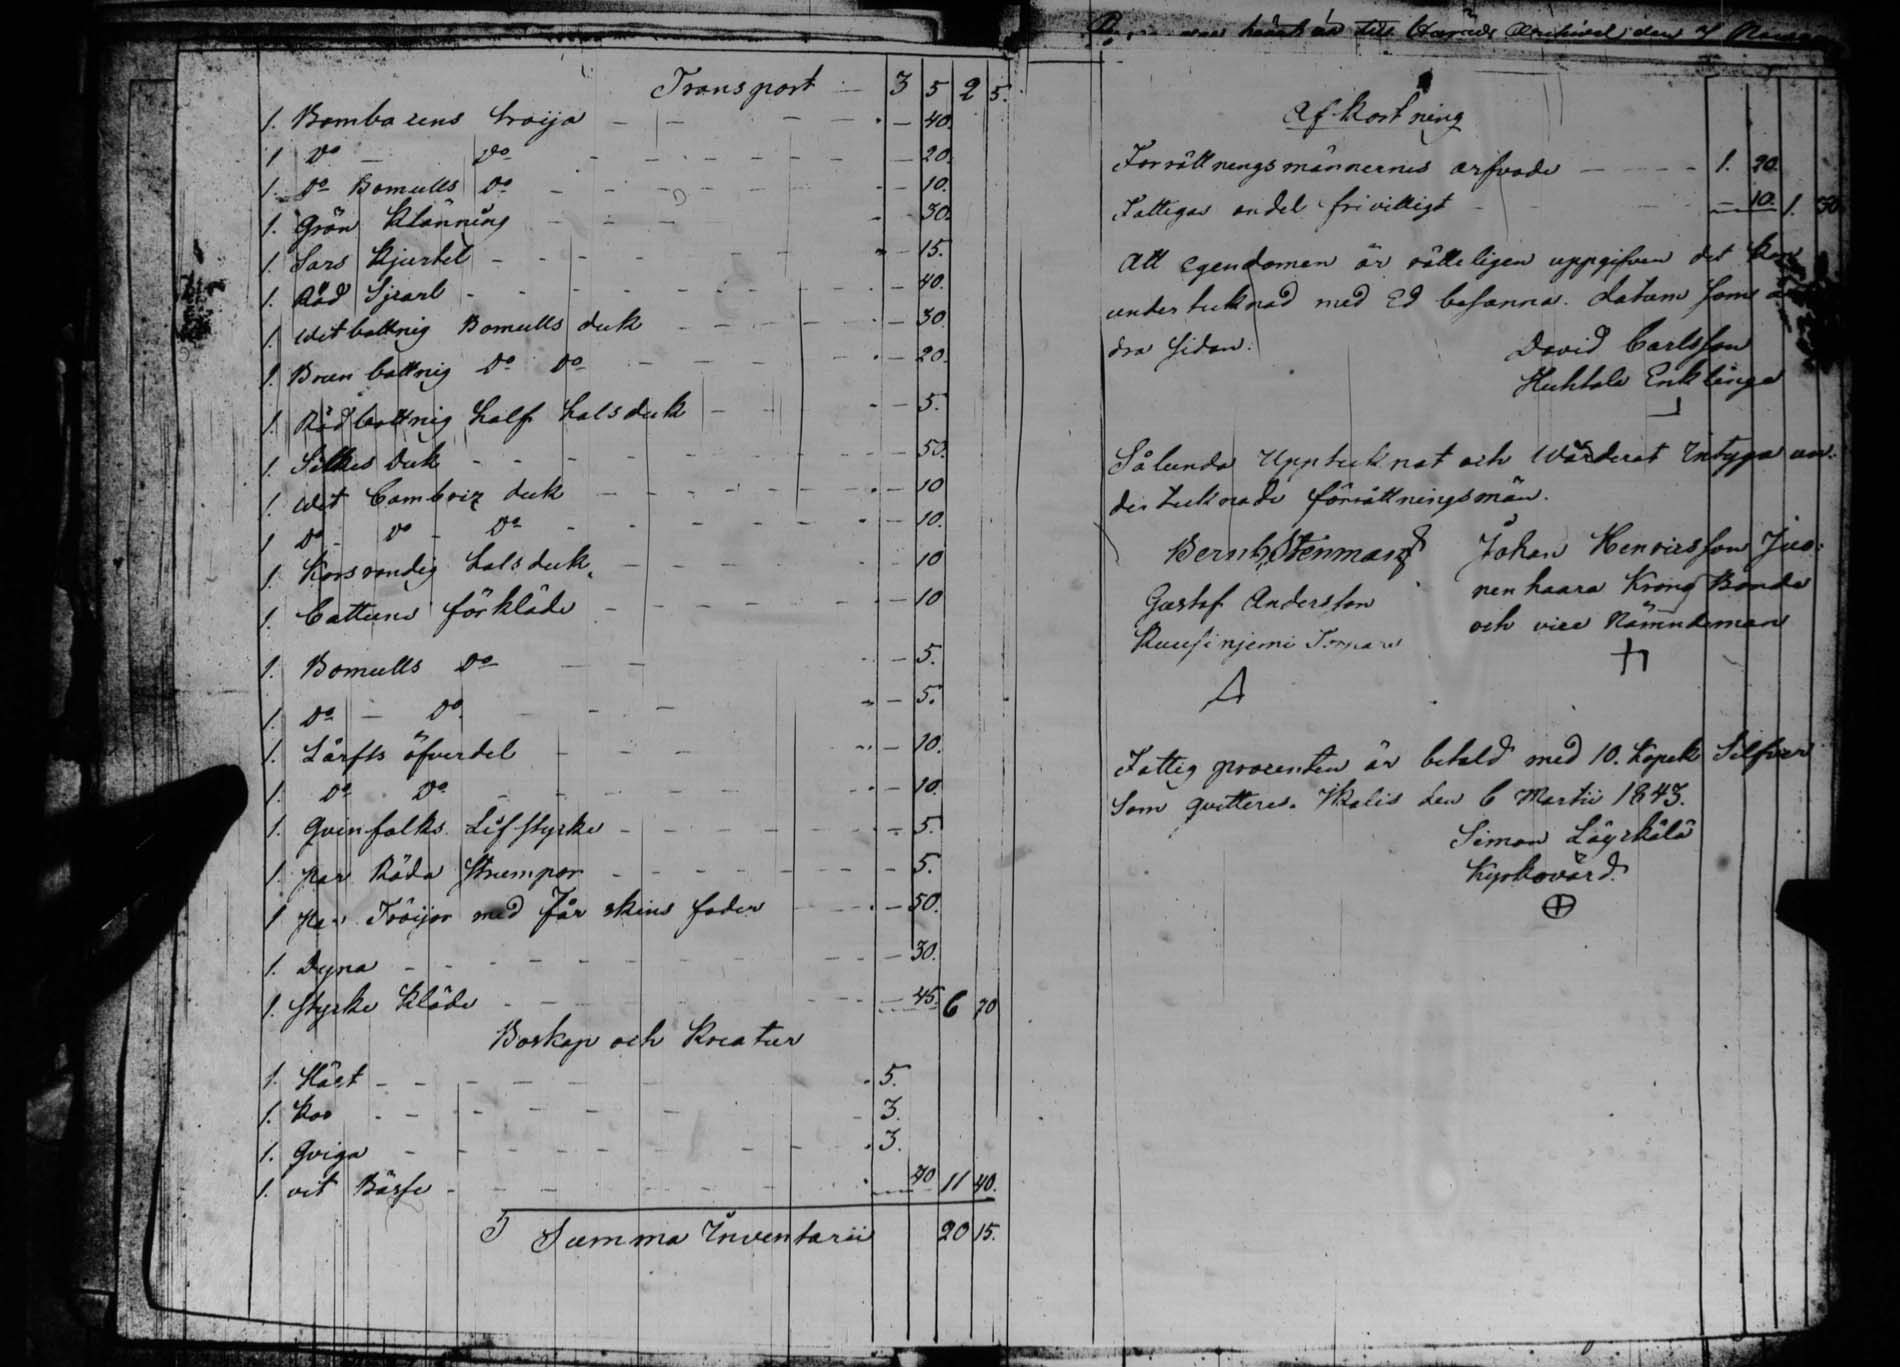 Transport 3 5 2 5.
1. Bombasens tröija 40.
1 Do Do 20.
1. Do Bomulls Do 10.
1. Grön Klänning 30.
1. Sars Kjurtel 15.
1. Röd Sjearl 40.
1. Witbottnig Bomulls duk 30
1. Brunbottnig Do Do 20.
1. Rödbottnig half halsduk 5.
1. Silkes Duk 50.
1. Wit Cambriz duk 10
1 Do Do Do 10.
1. Korsrandig halsduk 10
1. Cattuns förkläde 10
1. Bomulls Do 5.
1. Do Do 5.
1. Lärfts öfverdel 10.
1. Do Do 10.
1. Qvinfolks Lifstycke 5.
1. par Röda Strumpor 5.
1 Tröijor med Fårskins foder 50.
1. Dyna 30.
1. Stycke Kläde 45. 6 70
Boskap och Kreatur
1. Häst 5.
1. Koo 3.
1. Qviga 3.
1. vit Bässe 40 11 40.
Summa Inventarii 20 15.
till Härads Archivet den
Afkortning
Förrättningsmännernes arfvode 1. 20.
Fattigas andel frivilligt 10. 1. 30
Att egendomen är rätteligen uppgifven det kan
undertecknad med Ed besanna. datum som å
dra sidan.
David Carlsson
Huhtala Enklänge
Sålunda Upptecknat och Wärderat Intyga un-
dertecknade förrättningsmän.
Bernh. Stenmarck
Johan Henricsson Juo-
nenhaara Krono Bonde
och vice Nämndeman
Gustaf Andersson
Kuusinjemi
Fattig procenten är betald med 10. kopek Silfver
Som qvitteres. Ikalis den 6 Martii 1843.
Simon Läyckälä
Kyrkovärd.